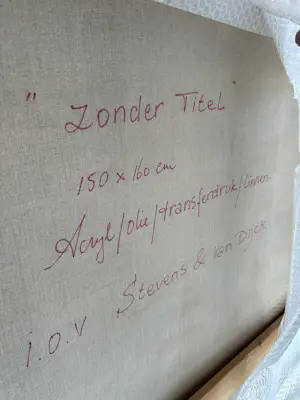 " Zonder Titel "
150 x 160 cm
Acryl/olie/transferdruk/linnen
i.o.v Stevens & Van Dijck